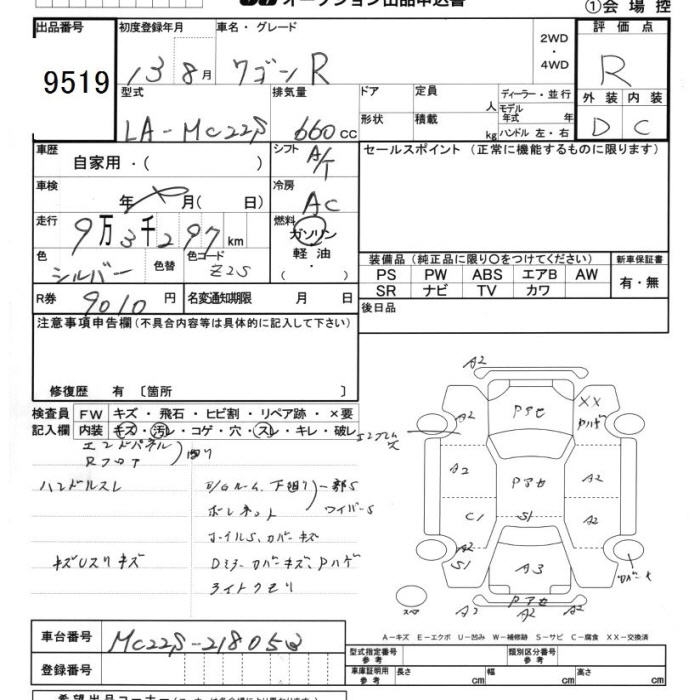 オークション出品申込書
①会場控
出品番号 初度登録年月 車名・グレード 2WD・4WD 評価点
9519 13 8月 ワゴンR R
型式 排気量 ドア 定員 人 ディーラー・並行 外装 内装
LA-MC22S 660cc 形状 積載 kg モデル年式 年 ハンドル 左・右 D C
車歴 自家用・( ) シフト A/T セールスポイント (正常に機能するものに限ります)
車検 年 月( 日) 冷房 AC
走行 9万3千297km 燃料 ガソリン・軽油・( )
色 シルバー 色替 色コード Z2S
装備品 (純正品に限り〇をつけてください) 新車保証書
PS PW ABS エアB AW 有・無
SR ナビ TV カワ
R券 9010円 名変通知期限 月 日 後日品
注意事項申告欄 (不具合内容等は具体的に記入して下さい)
修復歴 有 〔箇所 〕
検査員 FW キズ・飛石・ヒビ割・リペア跡・×要
記入欄 内装 キズ・汚レ・コゲ・穴・スレ・キレ・破レ
エンドパネル
Rフロア
ハンドルスレ
下廻り 一部S
ボンネット ワイパーS
ホイルS、カバーキズ
キズUスリキズ Dミラーカバーキズ、Pハゲ
ライトクモリ
A2
A2 Pアセ XX Pハゲ
A2 Pアセ A2
C1 S1 A2
A2 S1 A3
Pアセ
A2 A2
A-キズ E-エクボ U-凹み W-補修跡 S-サビ C-腐食 XX-交換済
車台番号 MC22S-218053
型式指定番号 参考 類別区分番号 参考
登録番号
車庫証明用 参考 長さ cm 幅 cm 高さ cm